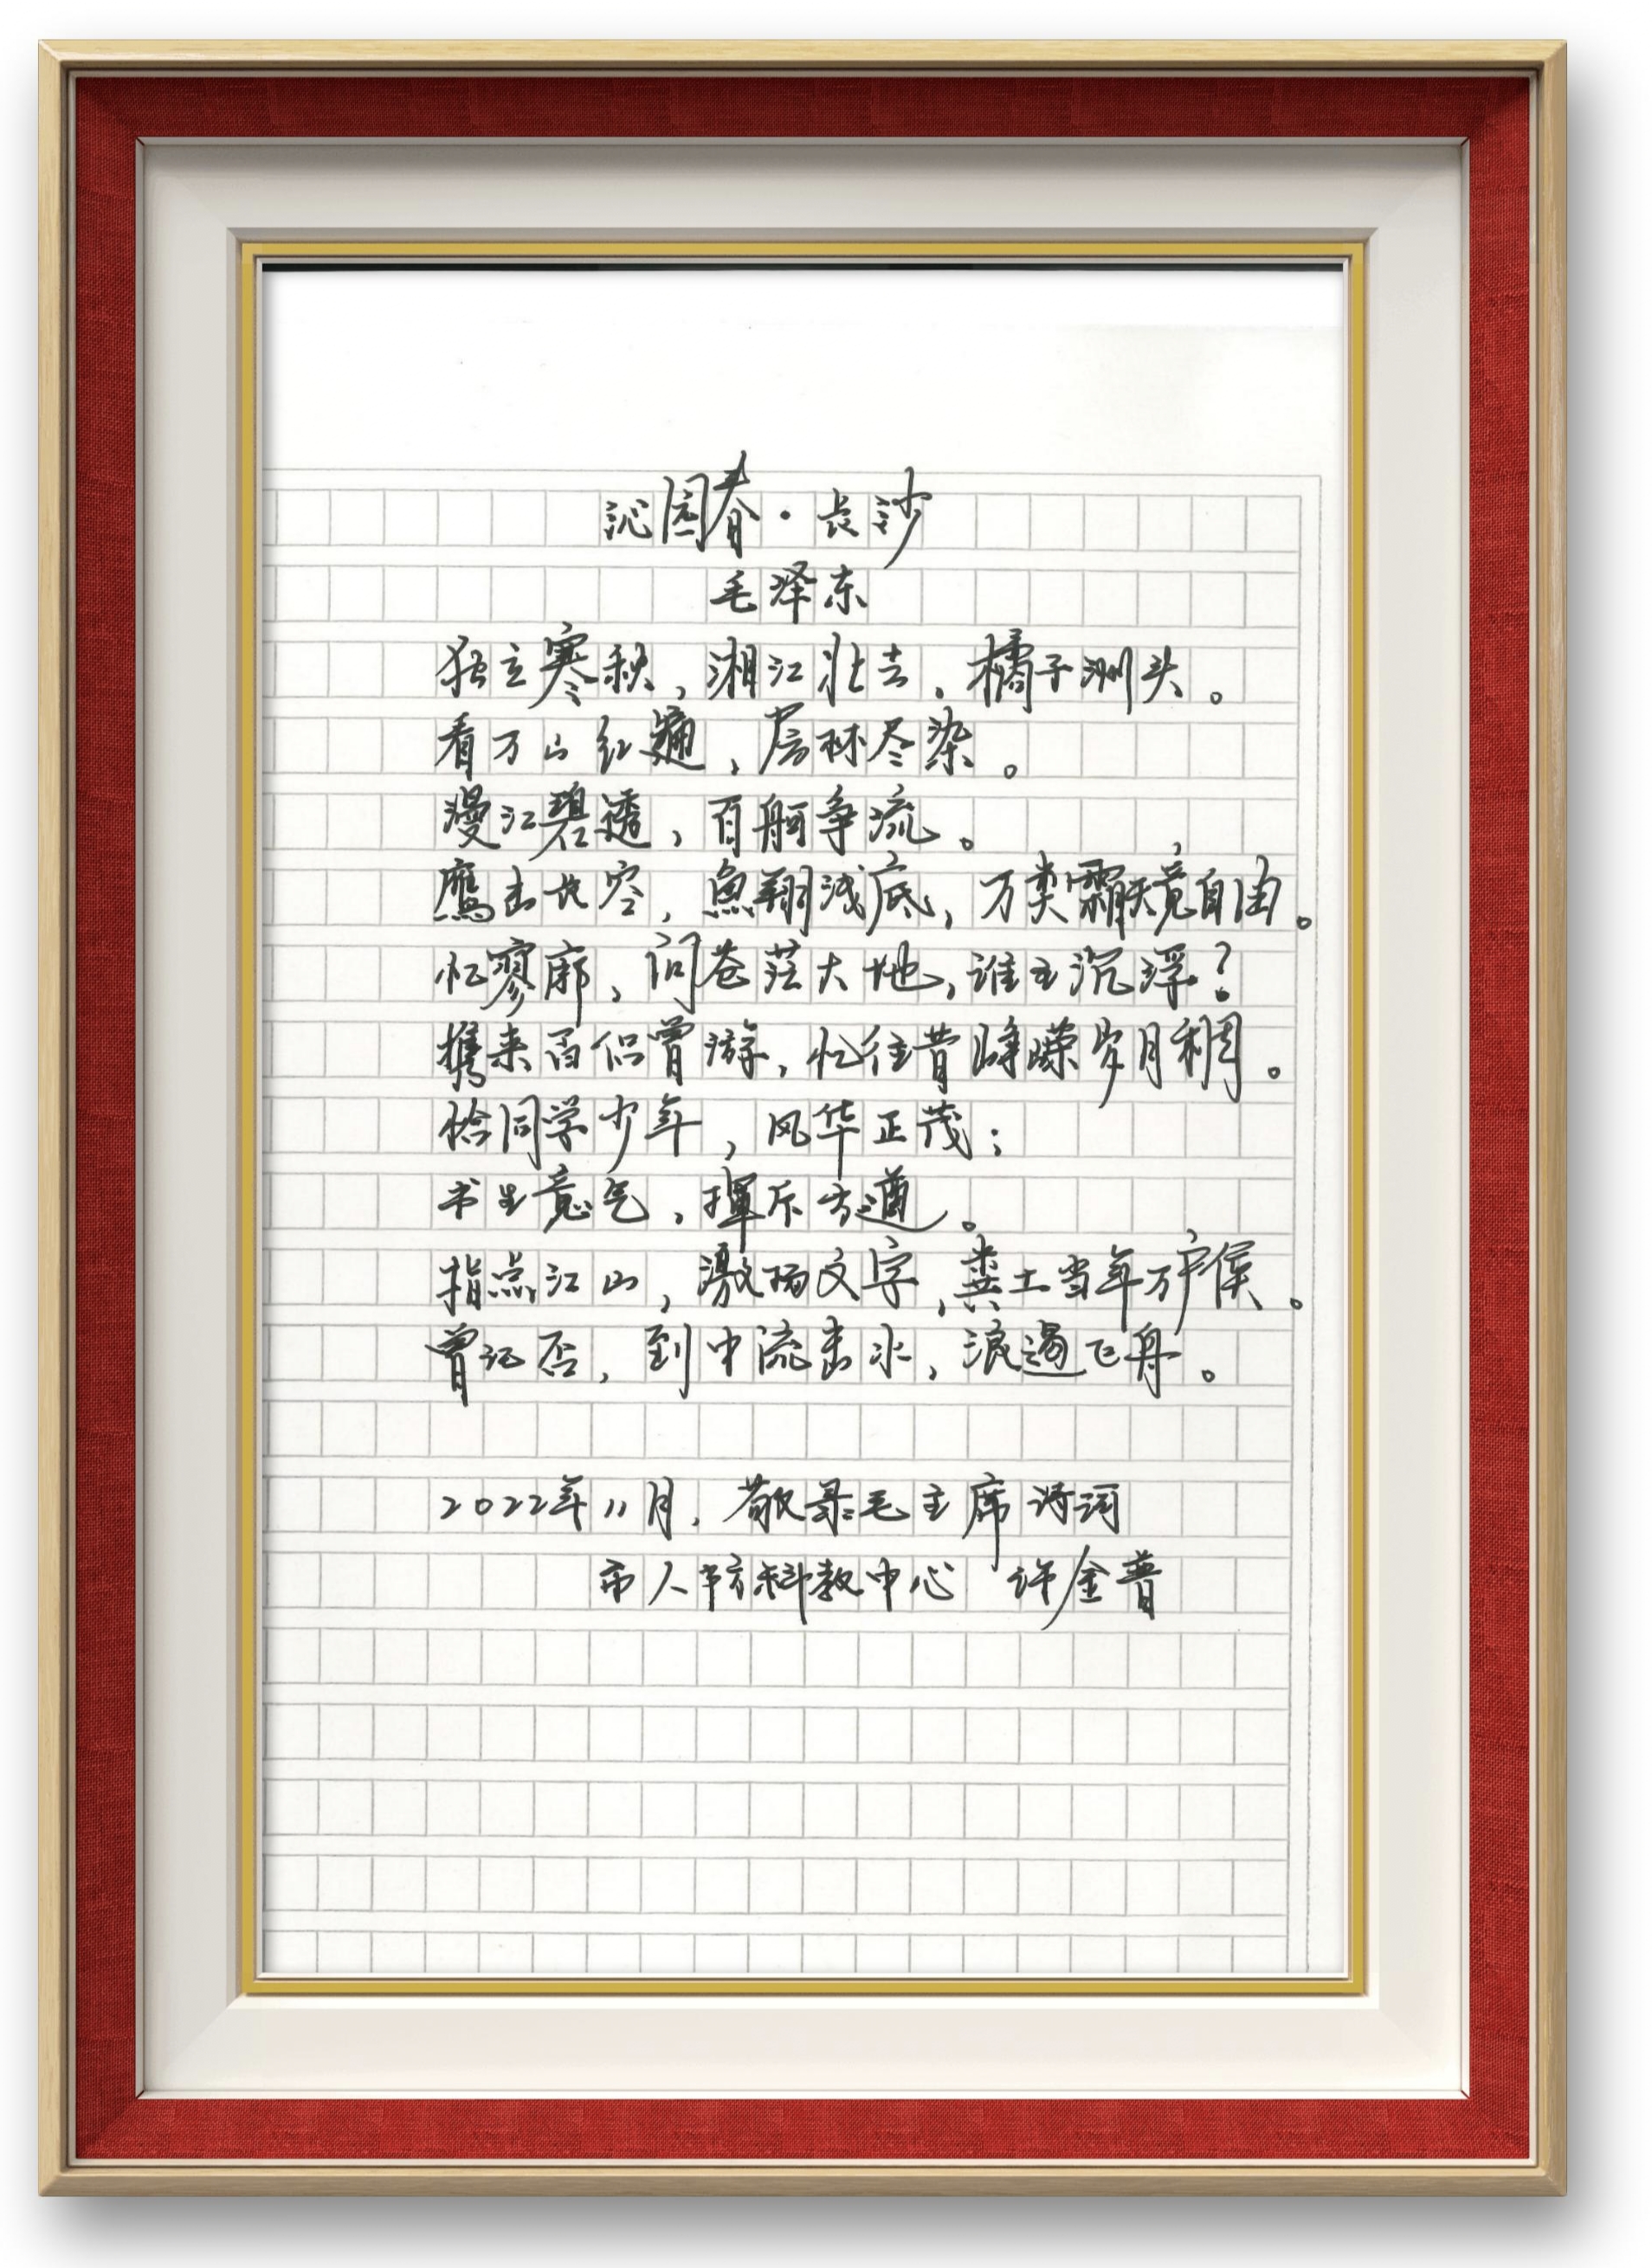 沁园春·长沙
毛泽东
独立寒秋，湘江北去，橘子洲头。
看万山红遍，层林尽染。
漫江碧透，百舸争流。
鹰击长空，鱼翔浅底，万类霜天竞自由。
忆寥廓，问苍茫大地，谁主沉浮？
携来百侣曾游，忆往昔峥嵘岁月稠。
恰同学少年，风华正茂；
书生意气，挥斥方遒。
指点江山，激扬文字，粪土当年万户侯。
曾记否，到中流击水，浪遏飞舟。
2022年11月，敬录毛主席诗词
市人防科教中心 许金普